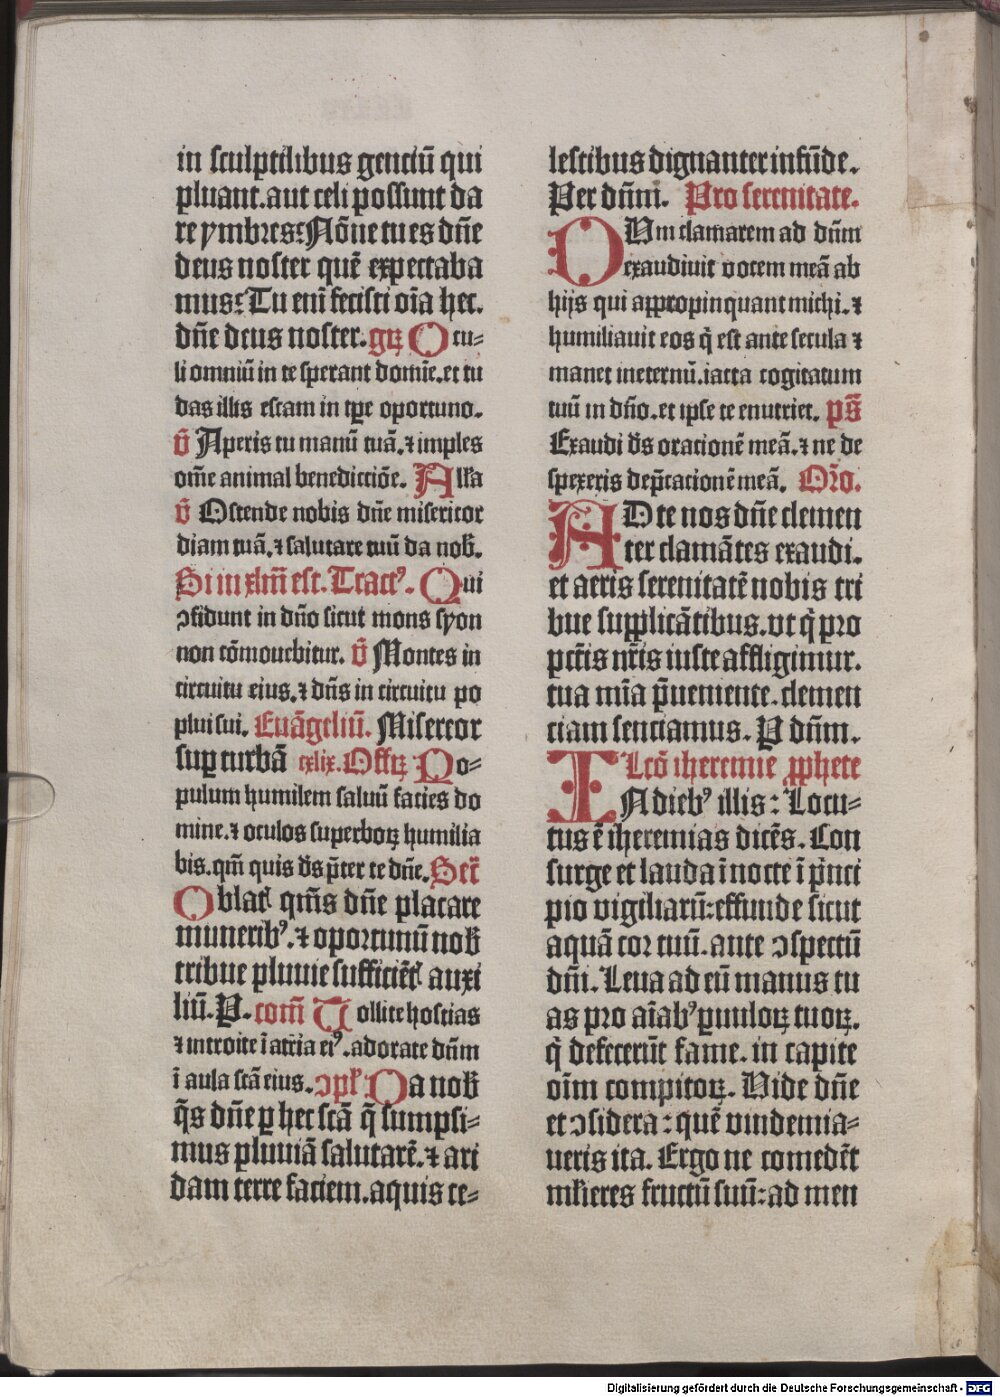 in sculptilibus genciū qui
pluant.aut celi possunt da
re ymbres: Nōne tu es dn̄e
deus noster quē expectaba
mus: Tu eni᷑ fecisti oi᷑a hec.
dn̄e deus noster. gꝝ Ocu⸗
li omniū in te sperant domi᷑e.et tu
das illis escam in tp̄e oportuno.
v̄ Aperis tu manū tuā.⁊ imples
om̄e animal benedictiōe. All'a
v̄ Ostende nobis dn̄e misericor
diam tuā.⁊ salutare tuū da nob̄.
Si in xlm̄ est. Tractꝰ. Qui
ↄfidunt in dn̄o sicut mons syon
non cōmouebitur. v̄ Montes in
circuitu eius.⁊ dn̄s in circuitu po
plui sui. Euāgeliū. Misereor
suꝑ turbā cxlix. Offꝝ Po⸗
pulum humilem saluū facies do
mine.⁊ oculos superboꝝ humilia
bis.qm̄ quis d̄s p̄ter te dn̄e. Secr̄
Oblat' qm̄s dn̄e placare
muneribꝰ.⁊ oportunū nob̄
tribue pluuie sufficiēt' auxi
liū. P. com̄ Tollite hostias
⁊ introite ī atria eiꝰ.adorate dn̄m
ī aula scā eius. ↄpl' Da nob̄
q̄s dn̄e ꝑ hec scā q̄ sumpsi⸗
mus pluuiā salutarē.⁊ ari
dam terre faciem.aquis ce⸗
lestibus dignanter infūde.
Per dn̄m. Pro serenitate.
DVm clamarem ad dn̄m
exaudiuit vocem meā ab
hijs qui appropinquant michi.⁊
humiliauit eos q̇ est ante secula ⁊
manet ineternū.iacta cogitatum
tuū in dn̄o.et ipse te enutriet. ps̄
Exaudi d̄s orationē meā.⁊ ne de
spexeris dep̄cacionē meā. Or̄o.
AD te nos dn̄e clemen
ter clamātes exaudi.
et aeris serenitatē nobis tri
bue supplicātibus.vt q̇ pro
pctīs nr̄is iuste affligimur.
tua mi᷑a p̄ueniente.clemen
ciam senciamus. P dn̄m.
Lcō iheremie ꝓphete
IN diebꝰ illis: Locu⸗
tus ē iheremias dicēs. Con
surge et lauda ī nocte ī p̄nci
pio vigiliarū:effunde sicut
aquā cor tuū.ante ↄspectū
dn̄i. Leua ad eū manus tu
as pro ai᷑abꝰ ꝑuuloꝝ tuoꝝ.
q̇ defecerūt fame.in capite
oi᷑m compitoꝝ. Vide dn̄e
et ↄsidera: quē vindemia⸗
ueris ita. Ergo ne comedēt
ml'ieres fructū suū:ad men
Digitalisierung gefördert durch die Deutsche Forschungsgemeinschaft - DFG